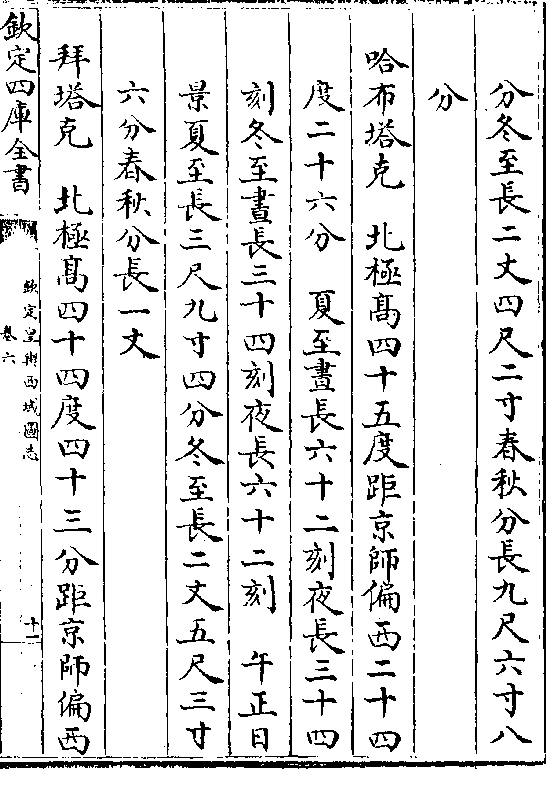 分冬至長二丈四尺二寸春秋分長九尺六寸八
分
哈布塔克　北極髙四十五度距京師偏西二十四
度二十六分　夏至晝長六十二刻夜長三十四
刻冬至晝長三十四刻夜長六十二刻　午正日
景夏至長三尺九寸四分冬至長二丈五尺三寸
六分春秋分長一丈
拜塔克　北極髙四十四度四十三分距京師偏西
欽定四庫全書
欽定皇輿西域圖志
卷六
十一